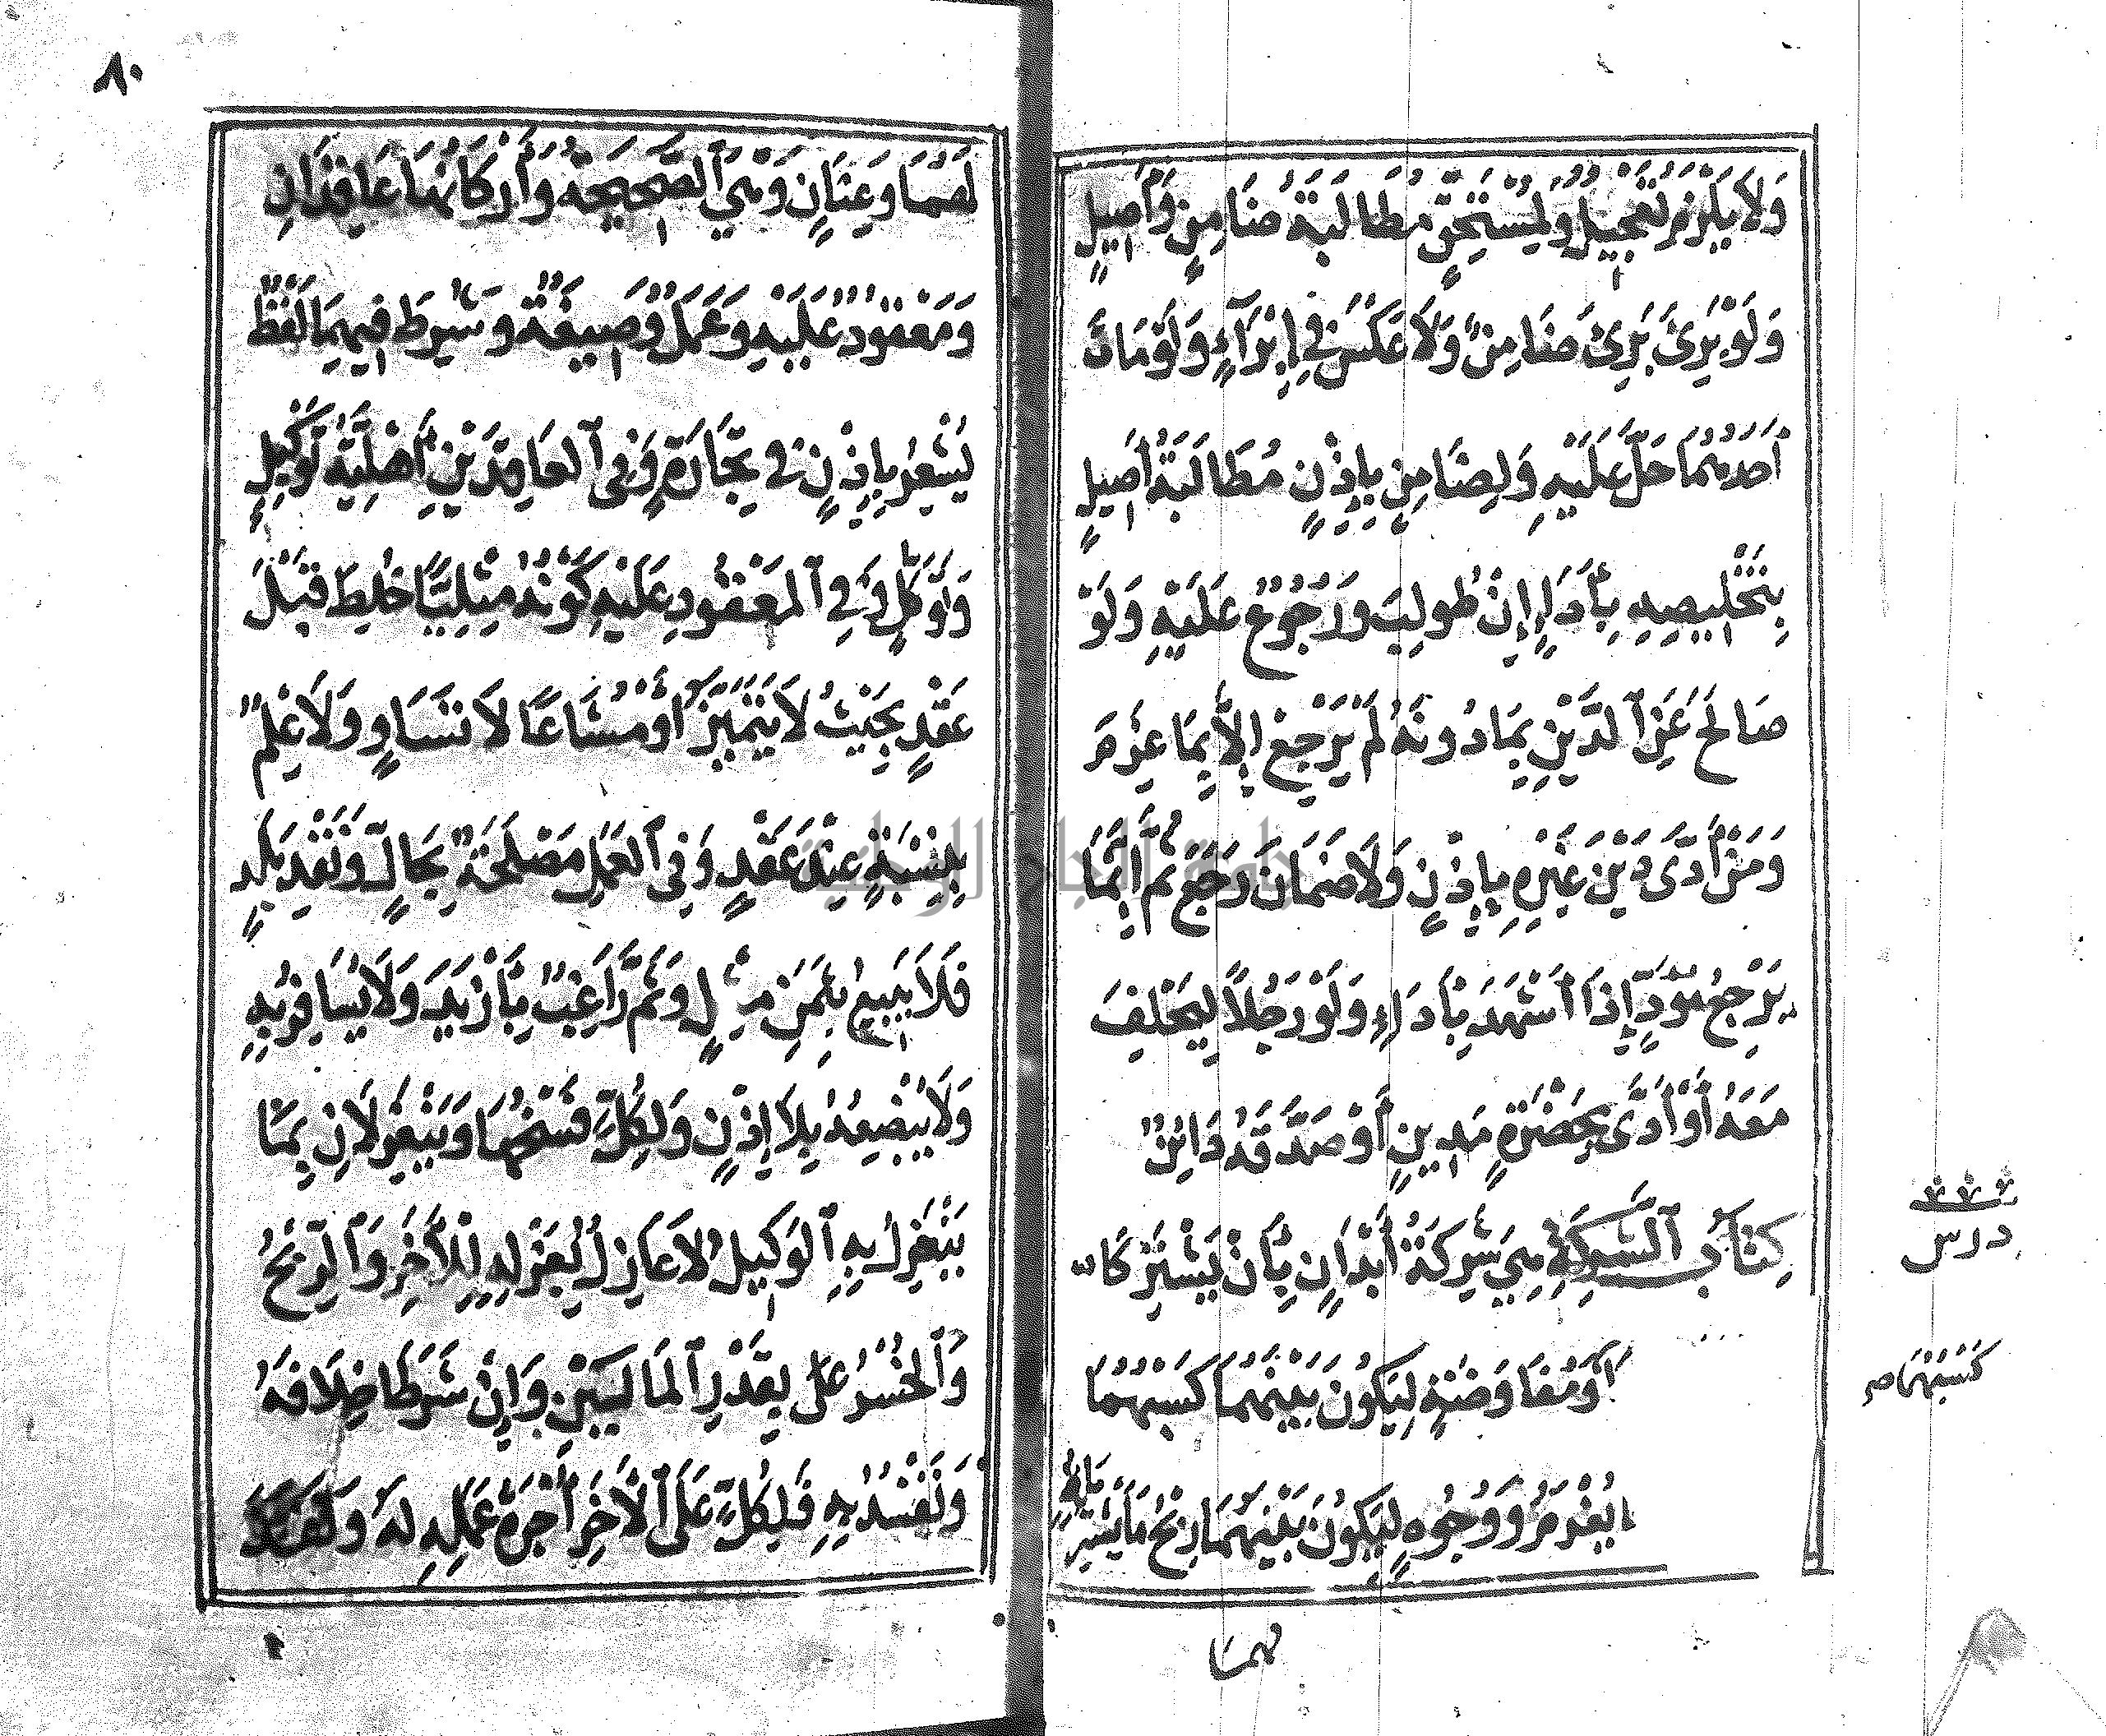 وَلَا يَلْزَمُ تَعْجِيلٌ وَلِمُسْتَحِقٍّ مُطَالَبَةُ ضَامِنٍ وَأَصِيلٍ
وَلَوْ بَرِئَ بَرِئَ ضَامِنٌ وَلَا عَكْسَ فِي إِبْرَآءٍ وَلَوْ مَاتَ
أَحَدُهُمَا حَلَّ عَلَيْهِ وَلِضَامِنٍ بِإِذْنٍ مُطَالَبَةُ أَصِيلٍ
بِتَخْلِيصِهِ بِأَدَاءٍ إِنْ طُولِبَ وَرُجُوعٌ عَلَيْهِ وَلَوْ
صَالَحَ عَنِ ٱلدَّيْنِ بِمَا دُونَهُ لَمْ يَرْجِعْ إِلَّا بِمَا غَرِمَ
وَمَنْ أَدَّى دَيْنَ غَيْرِهِ بِإِذْنٍ وَلَا ضَمَانَ رَجَعَ ثُمَّ إِنَّمَا
يَرْجِعُ مُؤَدٍّ إِذَا أَشْهَدَ بِأَدَاءٍ وَلَوْ رَجُلًا لِيَحْلِفَ
مَعَهُ أَوْ أَدَّى بِحَضْرَةِ مَدِينٍ أَوْ صَدَّقَهُ دَائِنٌ
كِتَابُ ٱلشَّرِكَةِ هِيَ شَرِكَةُ أَبْدَانٍ بِأَنْ يَشْتَرِكَا
أَوْ مُفَاوَضَةٍ لِيَكُونَ بَيْنَهُمَا كَسْبُهُمَا
يُغْرَمُ وَوُجُوهٍ لِيَكُونَ بَيْنَهُمَا رِبْحُ مَا يَشْتَرِ
يَانِهِ
درس
كَسْبُهُمَا صح
لهما
٨٠
لَهُمَا وَعِنَانٍ وَهِيَ ٱلصَّحِيحَةُ وَأَرْكَانُهَا عَاقِدَانِ
وَمَعْقُودٌ عَلَيْهِ وَعَمَلٌ وَصِيغَةٌ وَشُرِطَ فِيهَا لَفْظٌ
يُشْعِرُ بِإِذْنٍ فِي تِجَارَةٍ وَفِي ٱلعَاقِدَيْنِ أَهْلِيَّةُ تَوْكِيلٍ
وَتَوَكُّلٍ وَفِي ٱلمَعْقُودِ عَلَيْهِ كَوْنُهُ مِثْلِيًّا خُلِطَ قَبْلَ
عَقْدٍ بِحَيْثُ لَا يَتَمَيَّزُ أَوْ مُشَاعًا لَا تَسَاوٍ وَلَا عِلْمٌ
بِنِسْبَةٍ عِنْدَ عَقْدٍ وَفِي ٱلعَمَلِ مَصْلَحَةٌ بِحَالٍّ وَنَقْدِ بَلَدٍ
فَلَا يَبِيعُ بِثَمَنِ مِثْلٍ وَثَمَّ رَاغِبٌ بِأَزْيَدَ وَلَا يُسَافِرُ بِهِ
وَلَا يُبْضِعُهُ بِلَا إِذْنٍ وَلِكُلٍّ فَسْخُهَا وَيَنْعَزِلَانِ بِمَا
يَنْعَزِلُ بِهِ ٱلوَكِيلُ لَا عَازِلٌ بِعَزْلِهِ لِلْأَخَرِ وَٱلرِّبْحُ
وَٱلخُسْرُ عَلَى بِقَدْرِ ٱلمَالَيْنِ وَإِنْ شَرَطَا خِلَافَهُ
وَتَفْسُدُ بِهِ فَلِكُلٍّ عَلَى ٱلْأَخَرِ أُجْرَةُ عَمَلِهِ لَهُ